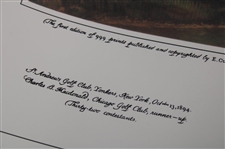 (The first edition of 999 prints published and copyrighted by E.C
St. Andrews Golf Club, Yonkers, New York, October 13, 1894.
Charles B. Macdonald, Chicago Golf Club, runner-up
(Thirty-two contestants.